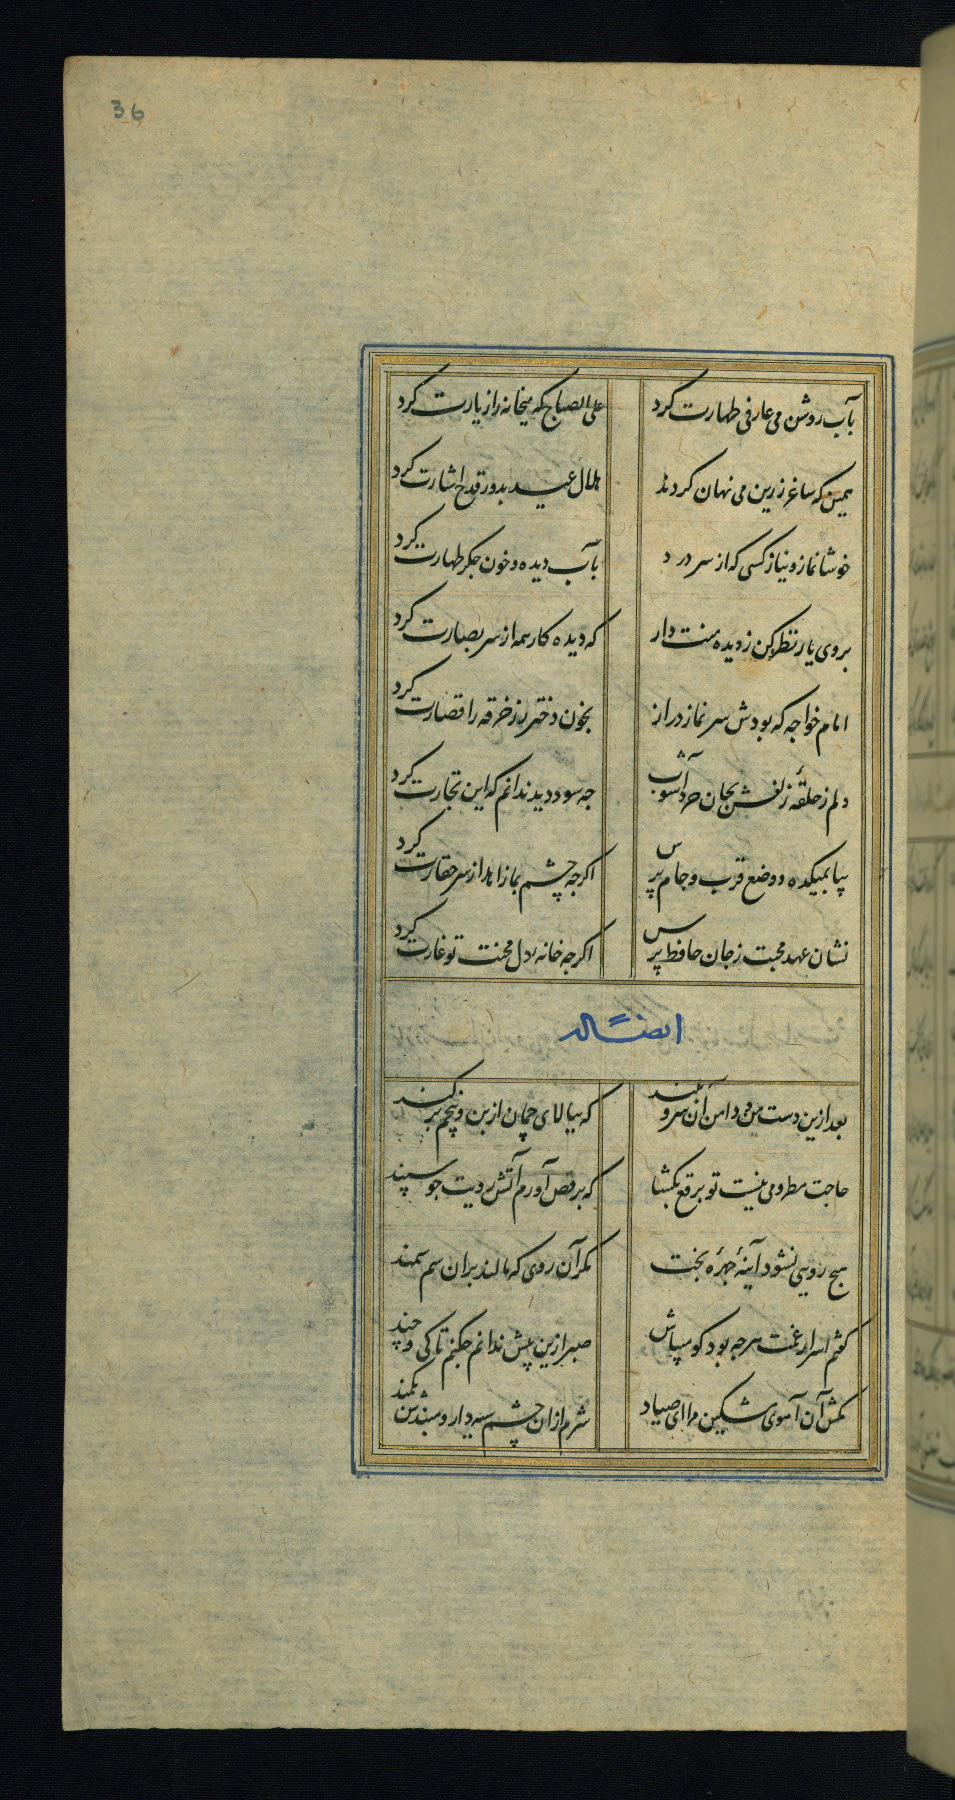 36
بآب روشن می عارفی طهارت کرد علی الصباح که میخانه را زیارت کرد
همین که ساغر زرین می نهان کردند هلال عید بدور قدح اشارت کرد
خوشا نماز و نیاز کسی که از سر درد بآب دیده و خون جکر طهارت کرد
بروی یار نظر کن ز دیده منت دار که دیده کار همه از سر بصارت کرد
امام خواجه که بودش سر نماز دراز بخون دختر رز خرقه را قصارت کرد
دلم ز حلقهٔ زلفش بجان خرد آشوب جه سود دید ندانم که این تجارت کرد
بیا بمیکده و وضع قرب و جام پرس اکرجه چشم بما زاهد از سر حقارت کرد
نشان عهد محبت ز جان حافظ پرس اکرجه خانهٔ دل محنت تو غارت کرد
ایضا له
بعد ازین دست من و دامن آن سرو بلند که ببالای جمان از بن و بیخم برکند
حاجت مطرب و می نیست تو برقع بکشا که برقص آوردم آتش رویت جو سپند
هیج رویی نشود آینهٔ جهرهٔ بخت مکر آن روی که مالند بران سم سمند
کفتم اسرار غمت هرجه بود کو میباش صبر ازین بیش ندانم جکنم تا کی و جند
مکش آن آهوی مشکین مرا ای صیاد شرم ازان چشم سیه دار و مبندش بکمند